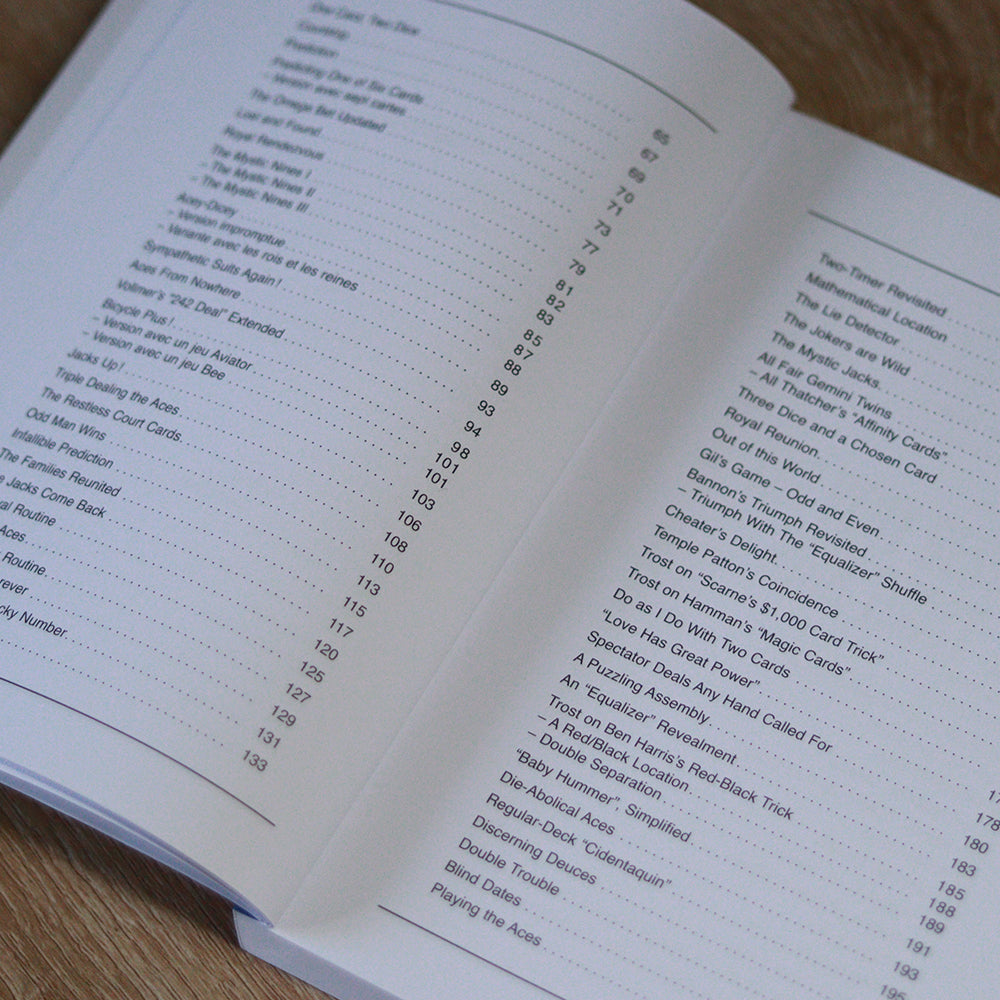 One Card, Two Dice 65
67
Prediction 69
Predicting One of Six Cards 70
– Version avec sept cartes 71
The Omega Bet Updated 73
Lost and Found 77
Royal Rendezvous 79
The Mystic Nines I 81
– The Mystic Nines II 82
– The Mystic Nines III 83
Acey-Dicey 85
– Version impromptue 87
– Variante avec les rois et les reines 88
Sympathetic Suits Again ! 89
Aces From Nowhere 93
Vollmer's “242 Deal” Extended 94
Bicycle Plus ! 98
– Version avec un jeu Aviator 101
– Version avec un jeu Bee 101
Jacks Up ! 103
Triple Dealing the Aces 106
The Restless Court Cards 108
Odd Man Wins 110
Infallible Prediction 113
The Families Reunited 115
Jacks Come Back 117
Routine 120
Aces 125
Routine 127
129
Number 131
133
Two-Timer Revisited
Mathematical Location
The Lie Detector
The Jokers are Wild
The Mystic Jacks
All Fair Gemini Twins
– All Thatcher's “Affinity Cards”
Three Dice and a Chosen Card
Royal Reunion
Out of this World
Gil's Game – Odd and Even
Bannon's Triumph Revisited
– Triumph With The “Equalizer” Shuffle
Cheater's Delight
Temple Patton's Coincidence
Trost on “Scarne's $1,000 Card Trick”
Trost on Hamman's “Magic Cards”
Do as I Do With Two Cards
“Love Has Great Power”
Spectator Deals Any Hand Called For
A Puzzling Assembly
An “Equalizer” Revealment
Trost on Ben Harris's Red-Black Trick
– A Red/Black Location
– Double Separation
“Baby Hummer”, Simplified
Die-Abolical Aces
Regular-Deck “Cidentaquin”
Discerning Deuces
Double Trouble
Blind Dates
Playing the Aces
178
180
183
185
188
189
191
193
195